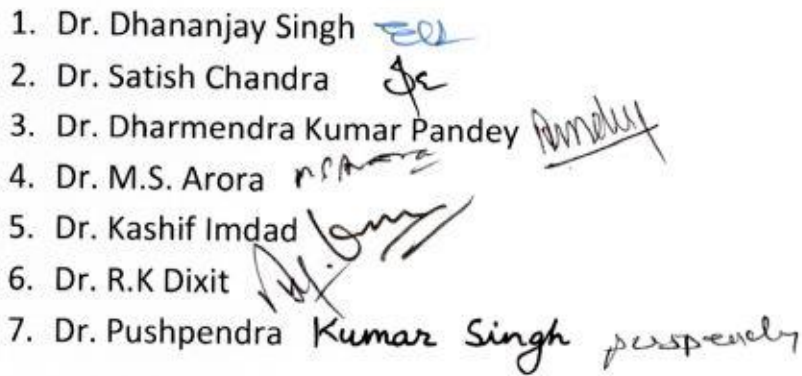 1. Dr. Dhananjay Singh
2. Dr. Satish Chandra
3. Dr. Dharmendra Kumar Pandey
4. Dr. M.S. Arora
5. Dr. Kashif Imdad
6. Dr. R.K Dixit
7. Dr. Pushpendra Kumar Singh